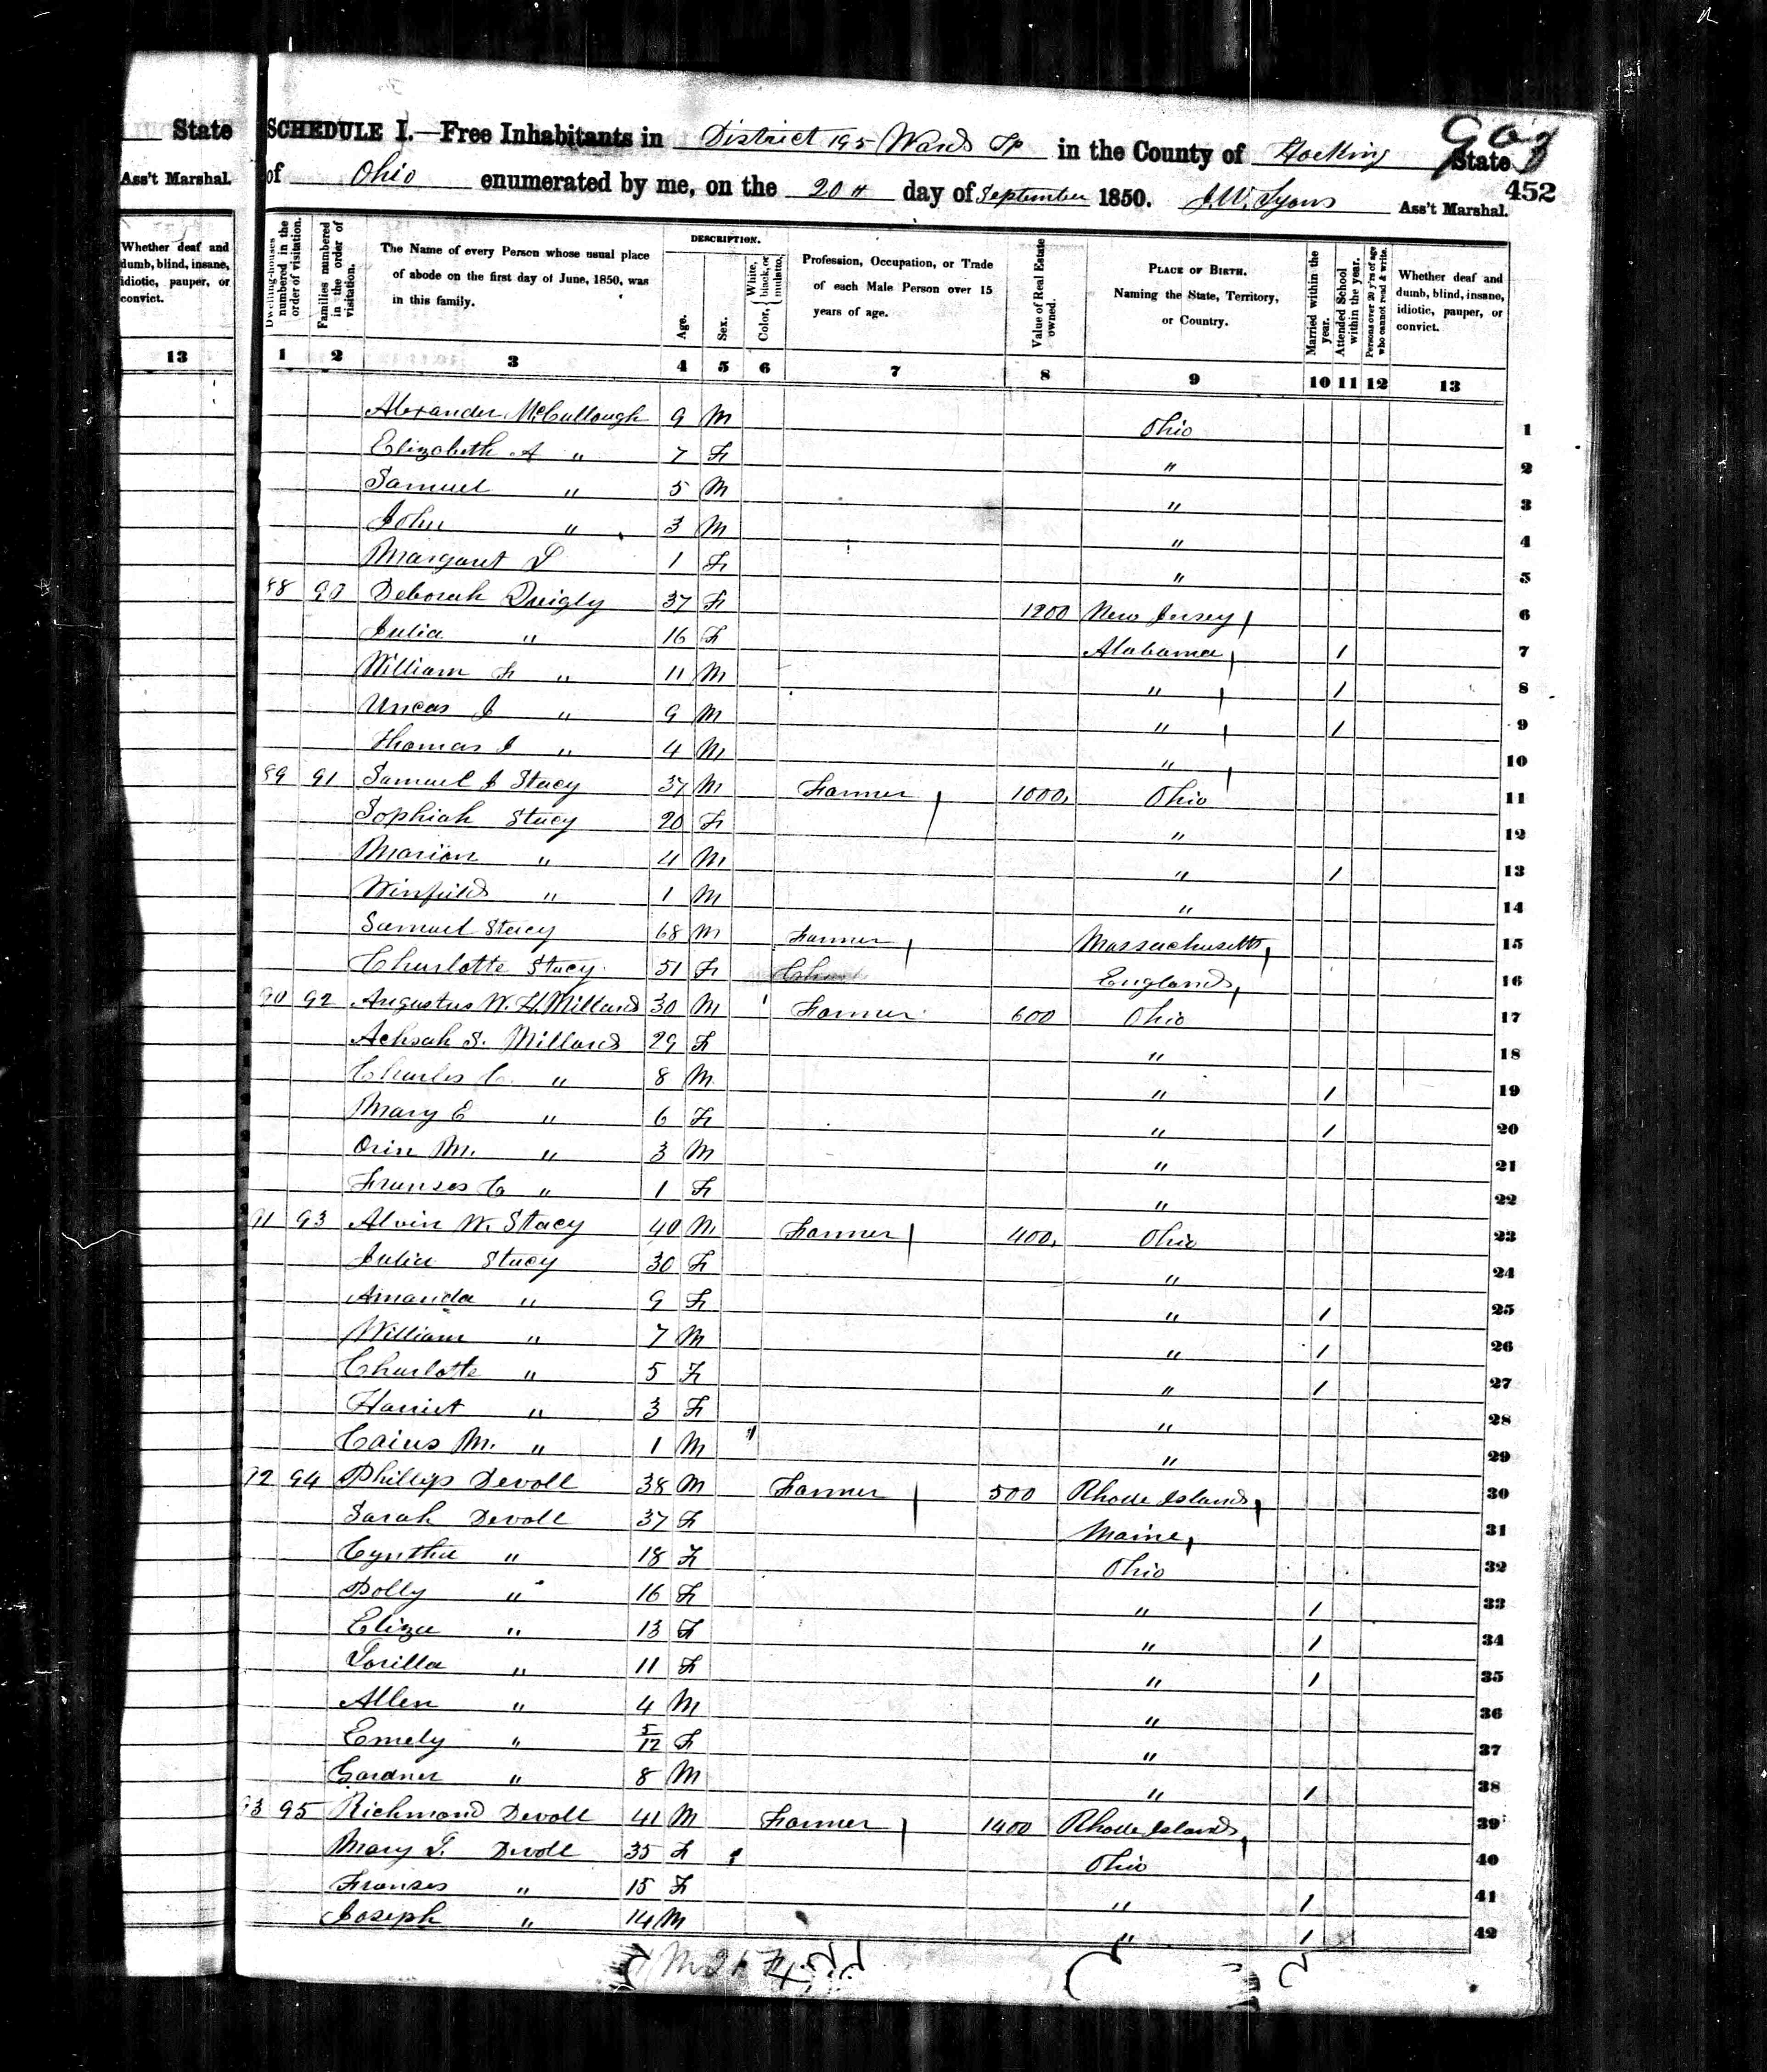 State
Ass't Marshal.
Whether deaf and
dumb, blind, insane,
idiotic, pauper, or
convict.
13
903
SCHEDULE I.—Free Inhabitants in District 195 Ward Tp in the County of Hocking State
of Ohio enumerated by me, on the 20th day of September 1850. J.W. Lyons Ass't Marshal.
452
Dwelling-houses numbered in the order of visitation.
Families numbered in the order of visitation.
The Name of every Person whose usual place of abode on the first day of June, 1850, was in this family.
DESCRIPTION.
Age.
Sex.
Color, { White, black, or mulatto.
Profession, Occupation, or Trade of each Male Person over 15 years of age.
Value of Real Estate owned.
PLACE OF BIRTH. Naming the State, Territory, or Country.
Married within the year.
Attended School within the year.
Persons over 20 y'rs of age who cannot read & write.
Whether deaf and dumb, blind, insane, idiotic, pauper, or convict.
1 2 3 4 5 6 7 8 9 10 11 12 13
Alexander McCullough 9 M Ohio 1
Elizabeth A " 7 F " 2
Samuel " 5 M " 3
John " 3 M " 4
Margaret 1 F " 5
88 90 Deborah Quigly 37 F 1200 New Jersey 6
Julia " 16 F Alabama 1 7
William F " 11 M " 1 8
Uncas J " 9 M " 1 9
Thomas J " 4 M " 10
89 91 Samuel J Stacy 37 M Farmer 1000 Ohio 11
Sophiah Stacy 20 F " 12
Marion " 4 M " 1 13
Winfield " 1 M " 14
Samuel Stacy 68 M Farmer Massachusetts 15
Charlotte Stacy 51 F England 16
90 92 Augustus W. H. Millard 30 M Farmer 600 Ohio 17
Achsah S. Millard 29 F " 18
Charles C. " 8 M " 1 19
Mary E " 6 F " 1 20
Orin M. " 3 M " 21
Franses C " 1 F " 22
91 93 Alvin W. Stacy 40 M Farmer 400 Ohio 23
Julia Stacy 30 F " 24
Amanda " 9 F " 1 25
William " 7 M " 1 26
Charlotte " 5 F " 1 27
Harriet " 3 F " 28
Caius M. " 1 M " 29
92 94 Phillip Devoll 38 M Farmer 500 Rhode Island 30
Sarah Devoll 37 F Maine 31
Cynthia " 18 F Ohio 32
Dolly " 16 F " 1 33
Eliza " 13 F " 1 34
Lorilla " 11 F " 1 35
Allen " 4 M " 36
Emely " 5/12 F " 37
Gardner " 8 M " 1 38
93 95 Richmond Devoll 41 M Farmer 1400 Rhode Island 39
Mary Devoll 35 F Ohio 40
Franses " 15 F " 1 41
Joseph " 14 M " 1 42